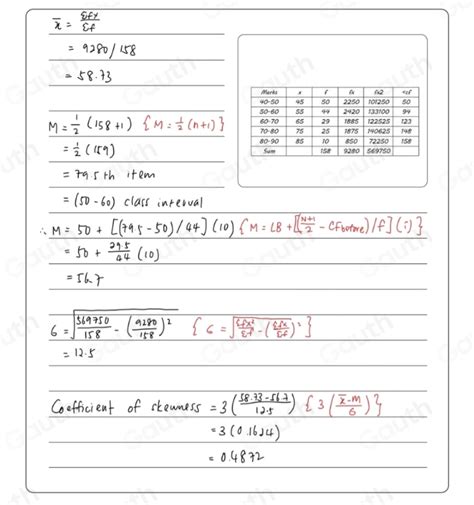 x̄ = Σfx/Σf
= 9280/158
= 58.73
Marks x f fx fx2 <cf
40-50 45 50 2250 101250 50
50-60 55 44 2420 133100 94
60-70 65 29 1885 122525 123
70-80 75 25 1875 140625 148
80-90 85 10 850 72250 158
Sum 158 9280 569750
M = 1/2 (158+1) { M = 1/2 (n+1) }
= 1/2 (159)
= 79.5 th item
= (50-60) class interval
∴ M = 50 + [(79.5-50)/44] (10) { M = LB + [(N+1/2 - CFbefore)/f] (i) }
= 50 + 29.5/44 (10)
= 56.7
6 = √569750/158 - (9280/158)² { 6 = √Σfx²/Σf - (Σfx/Σf)² }
= 12.5
Coefficient of skewness = 3 (58.73-56.7/12.5) { 3 (x̄-M/6) }
= 3 (0.1624)
= 0.4872
Gauth